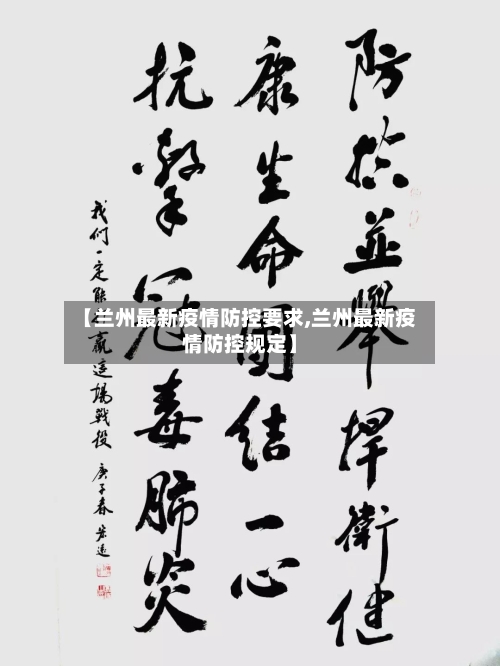 防控並舉捍衛健
康生命團结一心
抗擊冠毒肺炎
我们一定能赢这場戰役
庚子春
【兰州最新疫情防控要求,兰州最新疫
情防控规定】